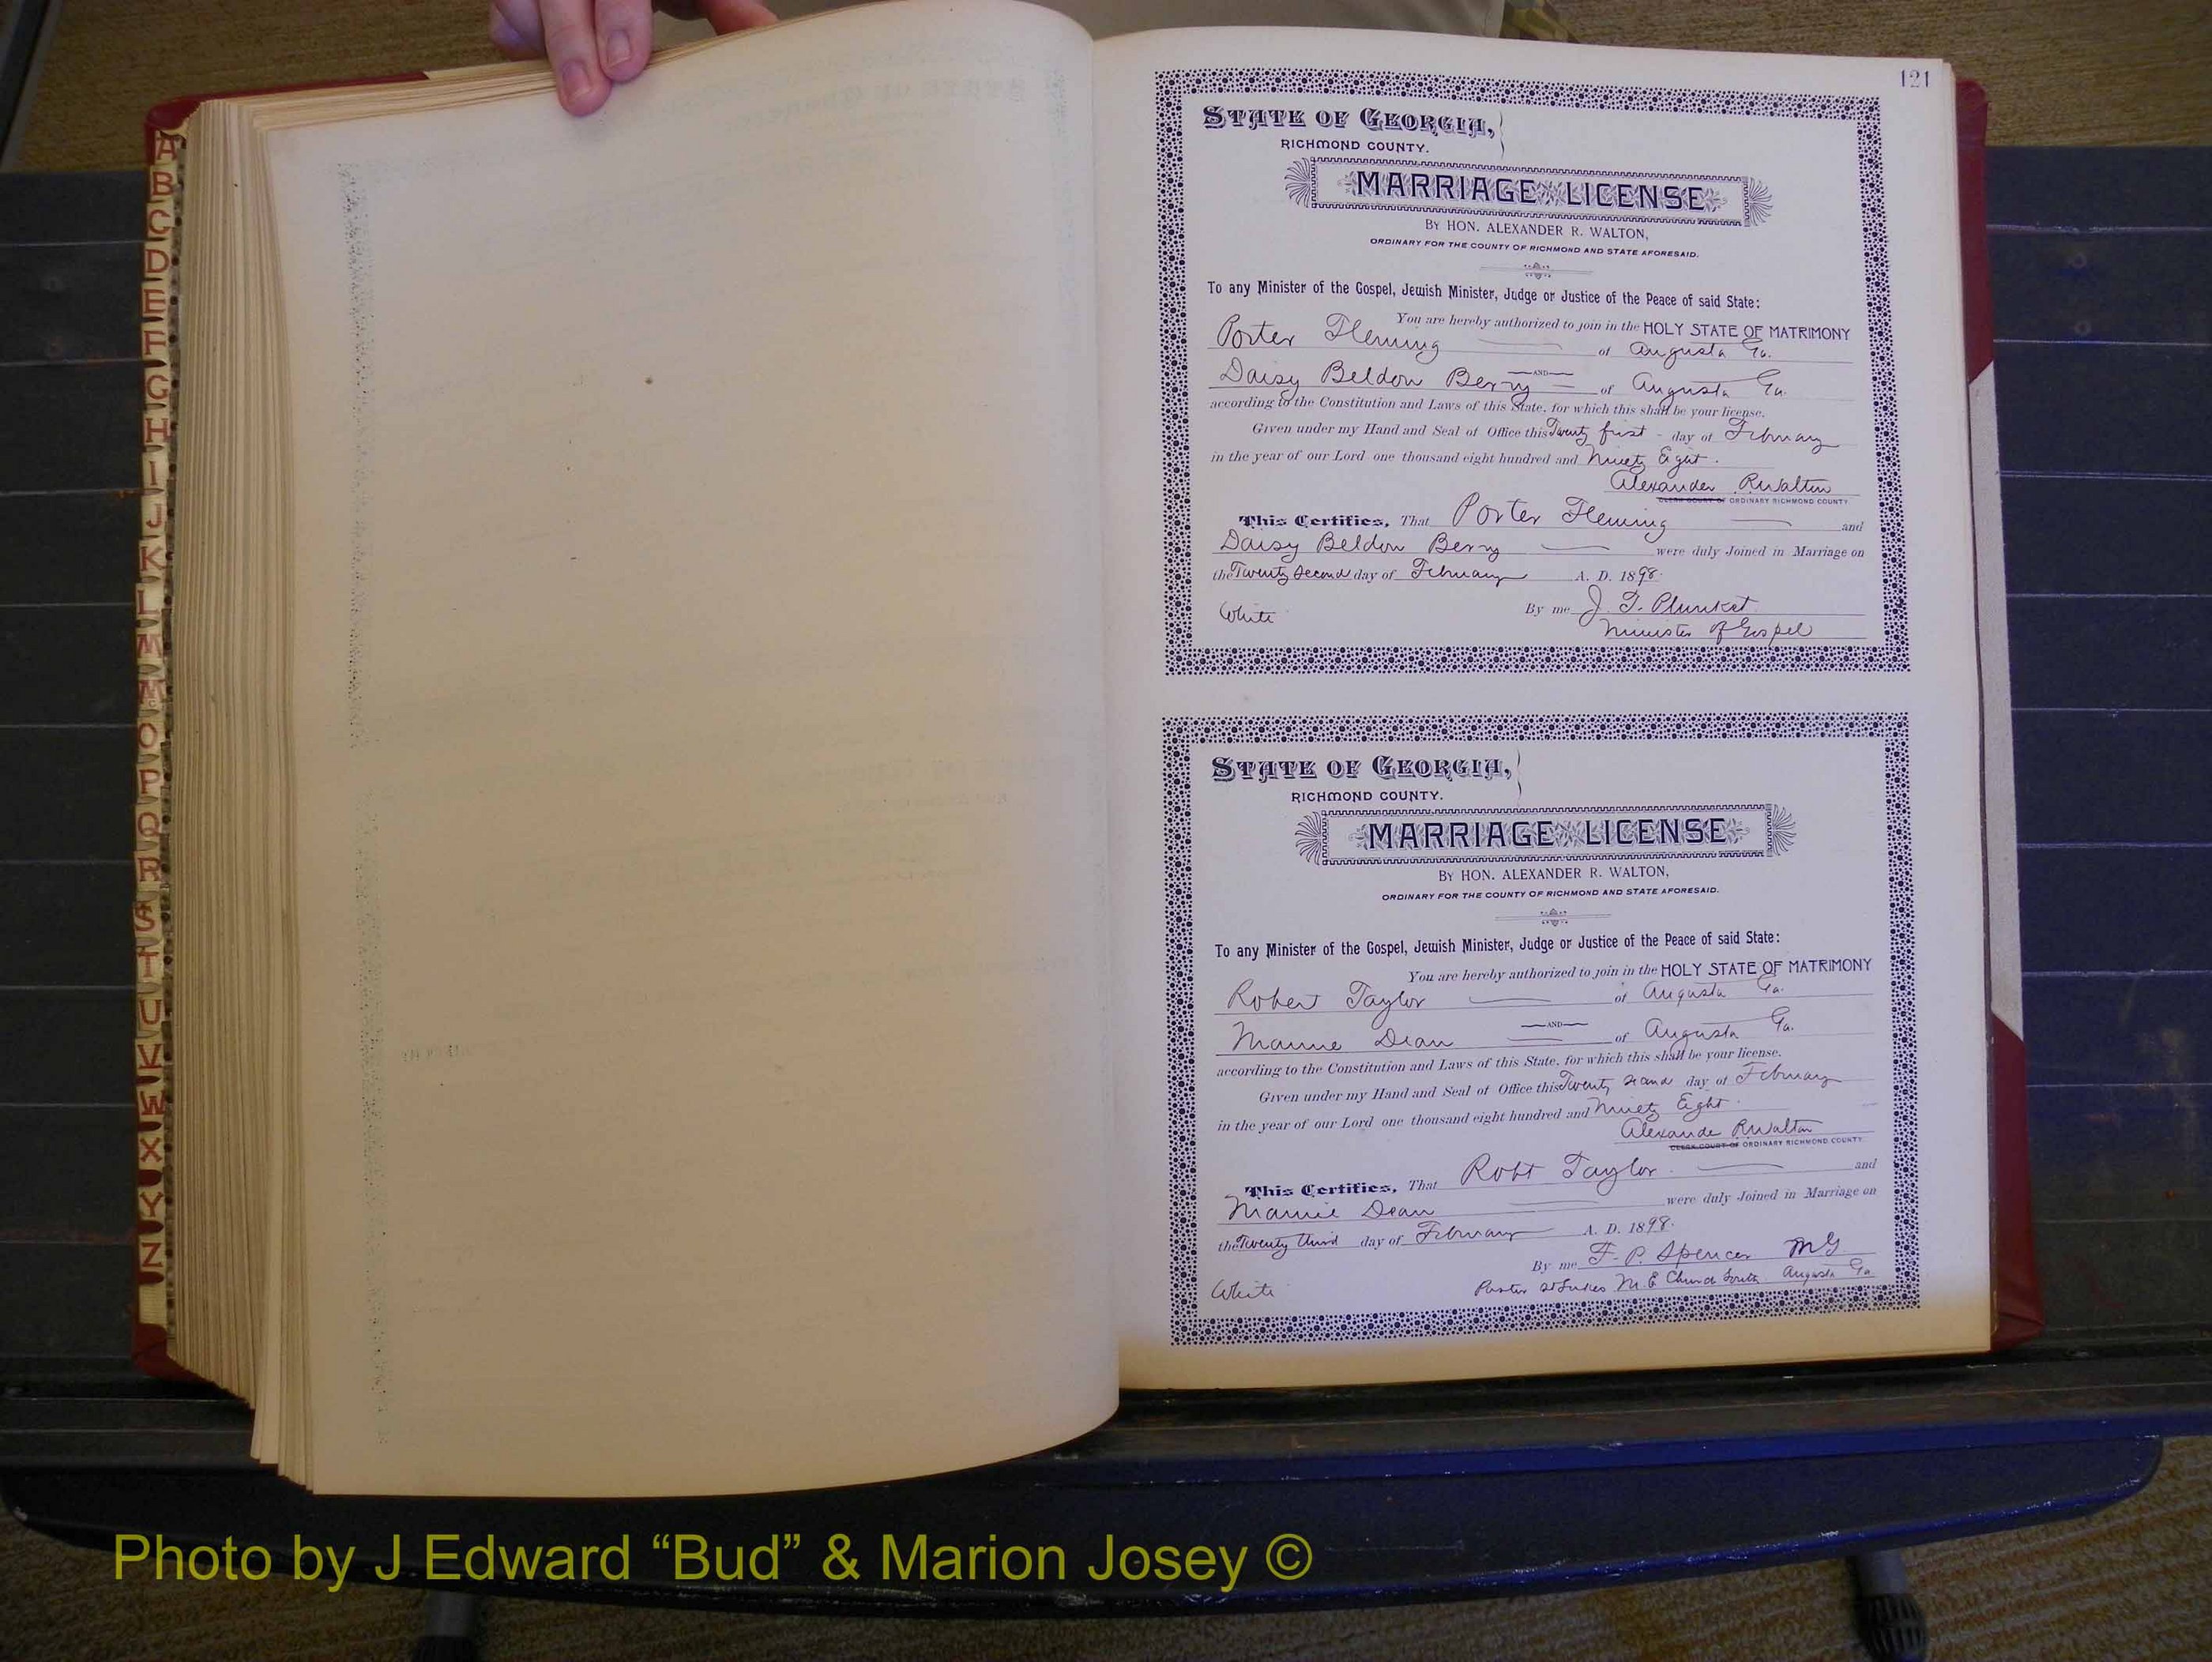 A
B
C
D
E
F
G
H
I
J
K
L
M
Mc
O
P
Q
R
S
T
U
V
W
X
Y
Z
121
STATE OF GEORGIA,
RICHMOND COUNTY.
MARRIAGE LICENSE
BY HON. ALEXANDER R. WALTON,
ORDINARY FOR THE COUNTY OF RICHMOND AND STATE AFORESAID.
To any Minister of the Gospel, Jewish Minister, Judge or Justice of the Peace of said State:
You are hereby authorized to join in the HOLY STATE OF MATRIMONY
Porter Fleming of Augusta Ga.
AND
Daisy Beldon Berry of Augusta Ga.
according to the Constitution and Laws of this State, for which this shall be your license.
Given under my Hand and Seal of Office this Twenty first day of February
in the year of our Lord one thousand eight hundred and Ninety Eight.
Alexander R Walton
CLERK COURT OF ORDINARY RICHMOND COUNTY
This Certifies, That Porter Fleming and
Daisy Beldon Berry were duly Joined in Marriage on
the Twenty Second day of February A. D. 1898.
White By me J. T. Plunket
Minister of Gospel
STATE OF GEORGIA,
RICHMOND COUNTY.
MARRIAGE LICENSE
BY HON. ALEXANDER R. WALTON,
ORDINARY FOR THE COUNTY OF RICHMOND AND STATE AFORESAID.
To any Minister of the Gospel, Jewish Minister, Judge or Justice of the Peace of said State:
You are hereby authorized to join in the HOLY STATE OF MATRIMONY
Robert Taylor of Augusta Ga.
AND
Mamie Dean of Augusta Ga.
according to the Constitution and Laws of this State, for which this shall be your license.
Given under my Hand and Seal of Office this Twenty second day of February
in the year of our Lord one thousand eight hundred and Ninety Eight.
Alexande R Walton
CLERK COURT OF ORDINARY RICHMOND COUNTY
This Certifies, That Robt Taylor. and
Mamie Dean were duly Joined in Marriage on
the Twenty third day of February A. D. 1898.
By me F. P. Spencer MG
White Pastor St M. E Church South Augusta Ga.
Photo by J Edward “Bud” & Marion Josey ©